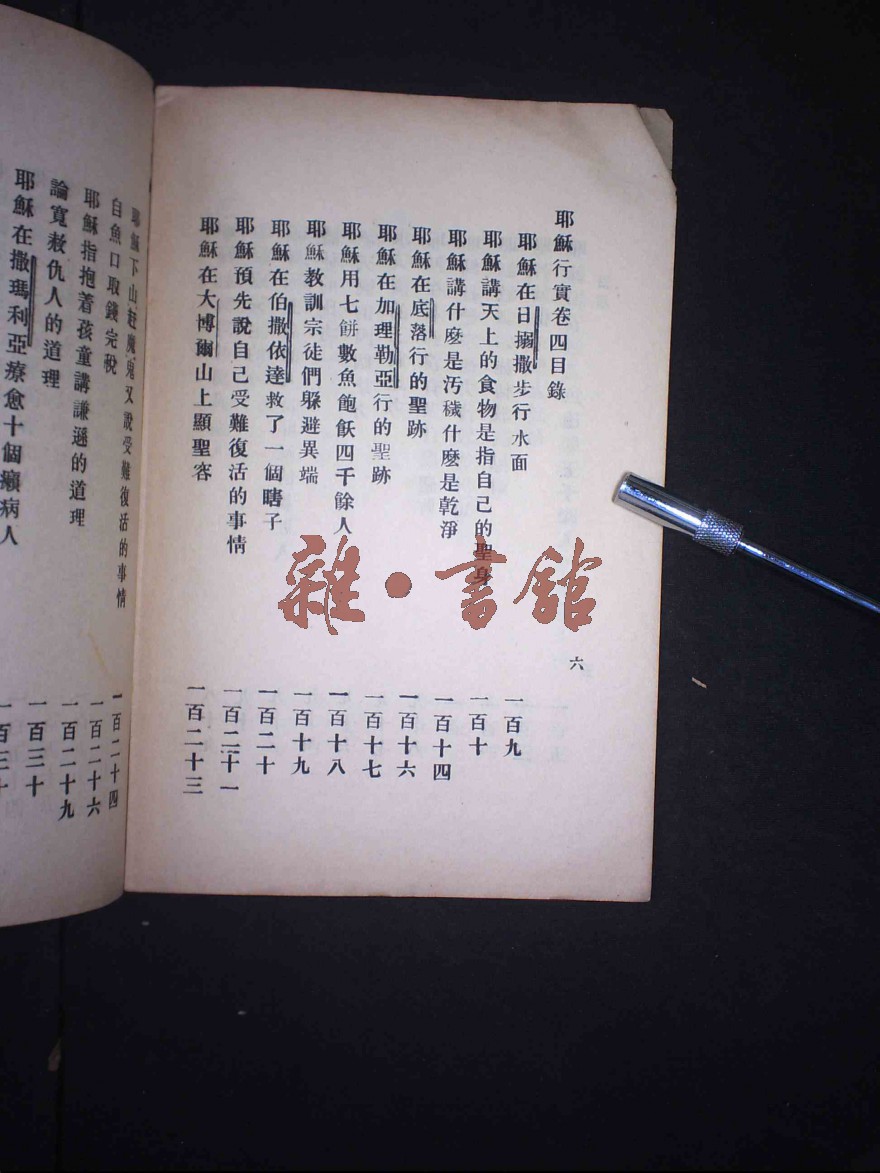 耶穌行實卷四目錄
六
耶穌在日搦撒步行水面 一百九
耶穌講天上的食物是指自己的聖身 一百十
耶穌講什麽是汚穢什麽是乾淨 一百十四
耶穌在底落行的聖跡 一百十六
耶穌在加理勒亞行的聖跡 一百十七
耶穌用七餅數魚飽飫四千餘人 一百十八
耶穌教訓宗徒們躲避異端 一百十九
耶穌在伯撒依達救了一個瞎子 一百二十
耶穌預先說自己受難復活的事情 一百二十一
耶穌在大博爾山上顯聖容 一百二十三
耶穌下山赶魔鬼又說受難復活的事情 一百二十四
自魚口取錢完稅 一百二十六
耶穌指抱着孩童講謙遜的道理 一百二十九
論寬赦仇人的道理 一百三十
耶穌在撒瑪利亞療愈十個癩病人
雜·書館